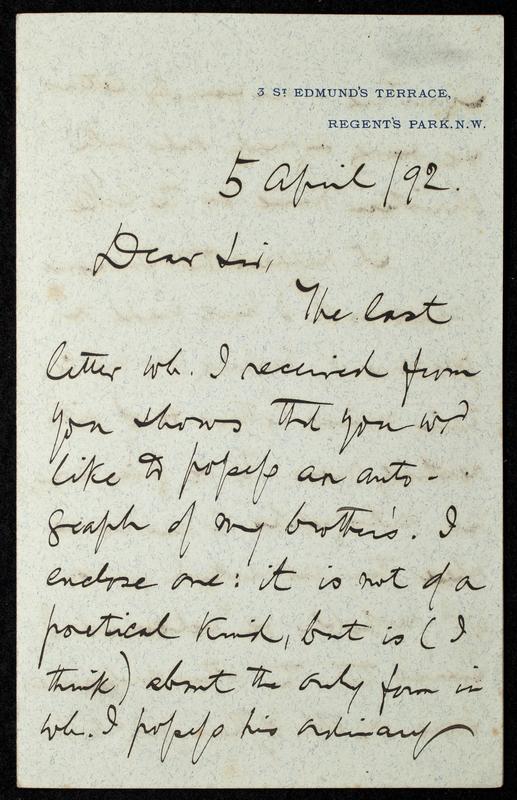 3 ST EDMUND'S TERRACE,
REGENT'S PARK.N.W.
5 April /92.
Dear Sir,
The last
letter wh. I received from
you shows tht you wd
like to possess an auto-
graph of my brother's. I
enclose one: it is not of a
poetical kind, but is (I
think) about the only form in
wh. I possess his ordinary